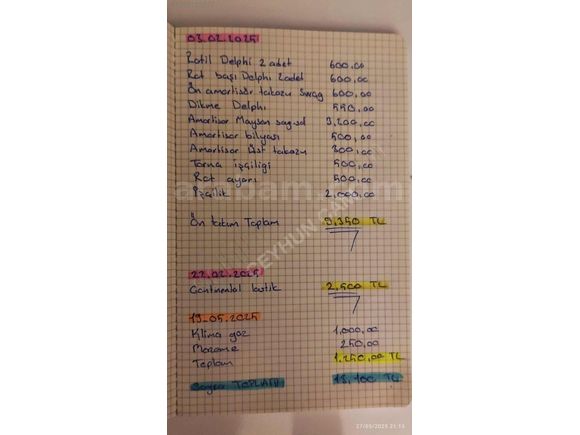 03.02.2025
Rotil Delphi 2 adet 600,00
Rot başı Delphi 2adet 600,00
Ön amortisör takozu Swag 600,00
Dikme Delphi 550,00
Amortisör Maysan sag sol 3,200,00
Amortisör bilyası 500,00
Amortisör Üst takozu 300,00
Torna işçiligi 500,00
Rot ayarı 500,00
İşçilik 2,000,00
Ön takım Toplam 9,350 TL
22.02.2025
Contınental lastik 2,500 TL
19-05.2025
Klima gaz 1,000,00
250,00
Toplam 1.250,00 TL
TOPLAM 13,100 TL
arabam.com
CEYHUN CAN
27/05/2025 21:14